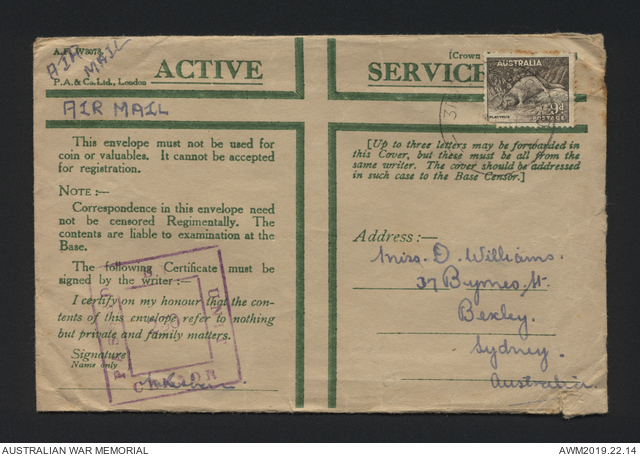 A.F. W3078.
AIR MAIL
P.A. & Co. Ltd., London
[Crown
ACTIVE
SERVICE
AIR MAIL
AUSTRALIA
9d
PLATYPUS
POSTAGE
This envelope must not be used for
coin or valuables. It cannot be accepted
for registration.
NOTE :—
Correspondence in this envelope need
not be censored Regimentally. The
contents are liable to examination at the
Base.
The following Certificate must be
signed by the writer:—
I certify on my honour that the con-
tents of this envelope refer to nothing
but private and family matters.
Signature
Name only
[Up to three letters may be forwarded in
this Cover, but these must all be from the
same writer. The cover should be addressed
in such case to the Base Censor.]
Address:—
Miss. D. Williams.
37 Byrnes St.
Bexley.
Sydney.
Australia.
AUSTRALIAN WAR MEMORIAL
AWM2019.22.14